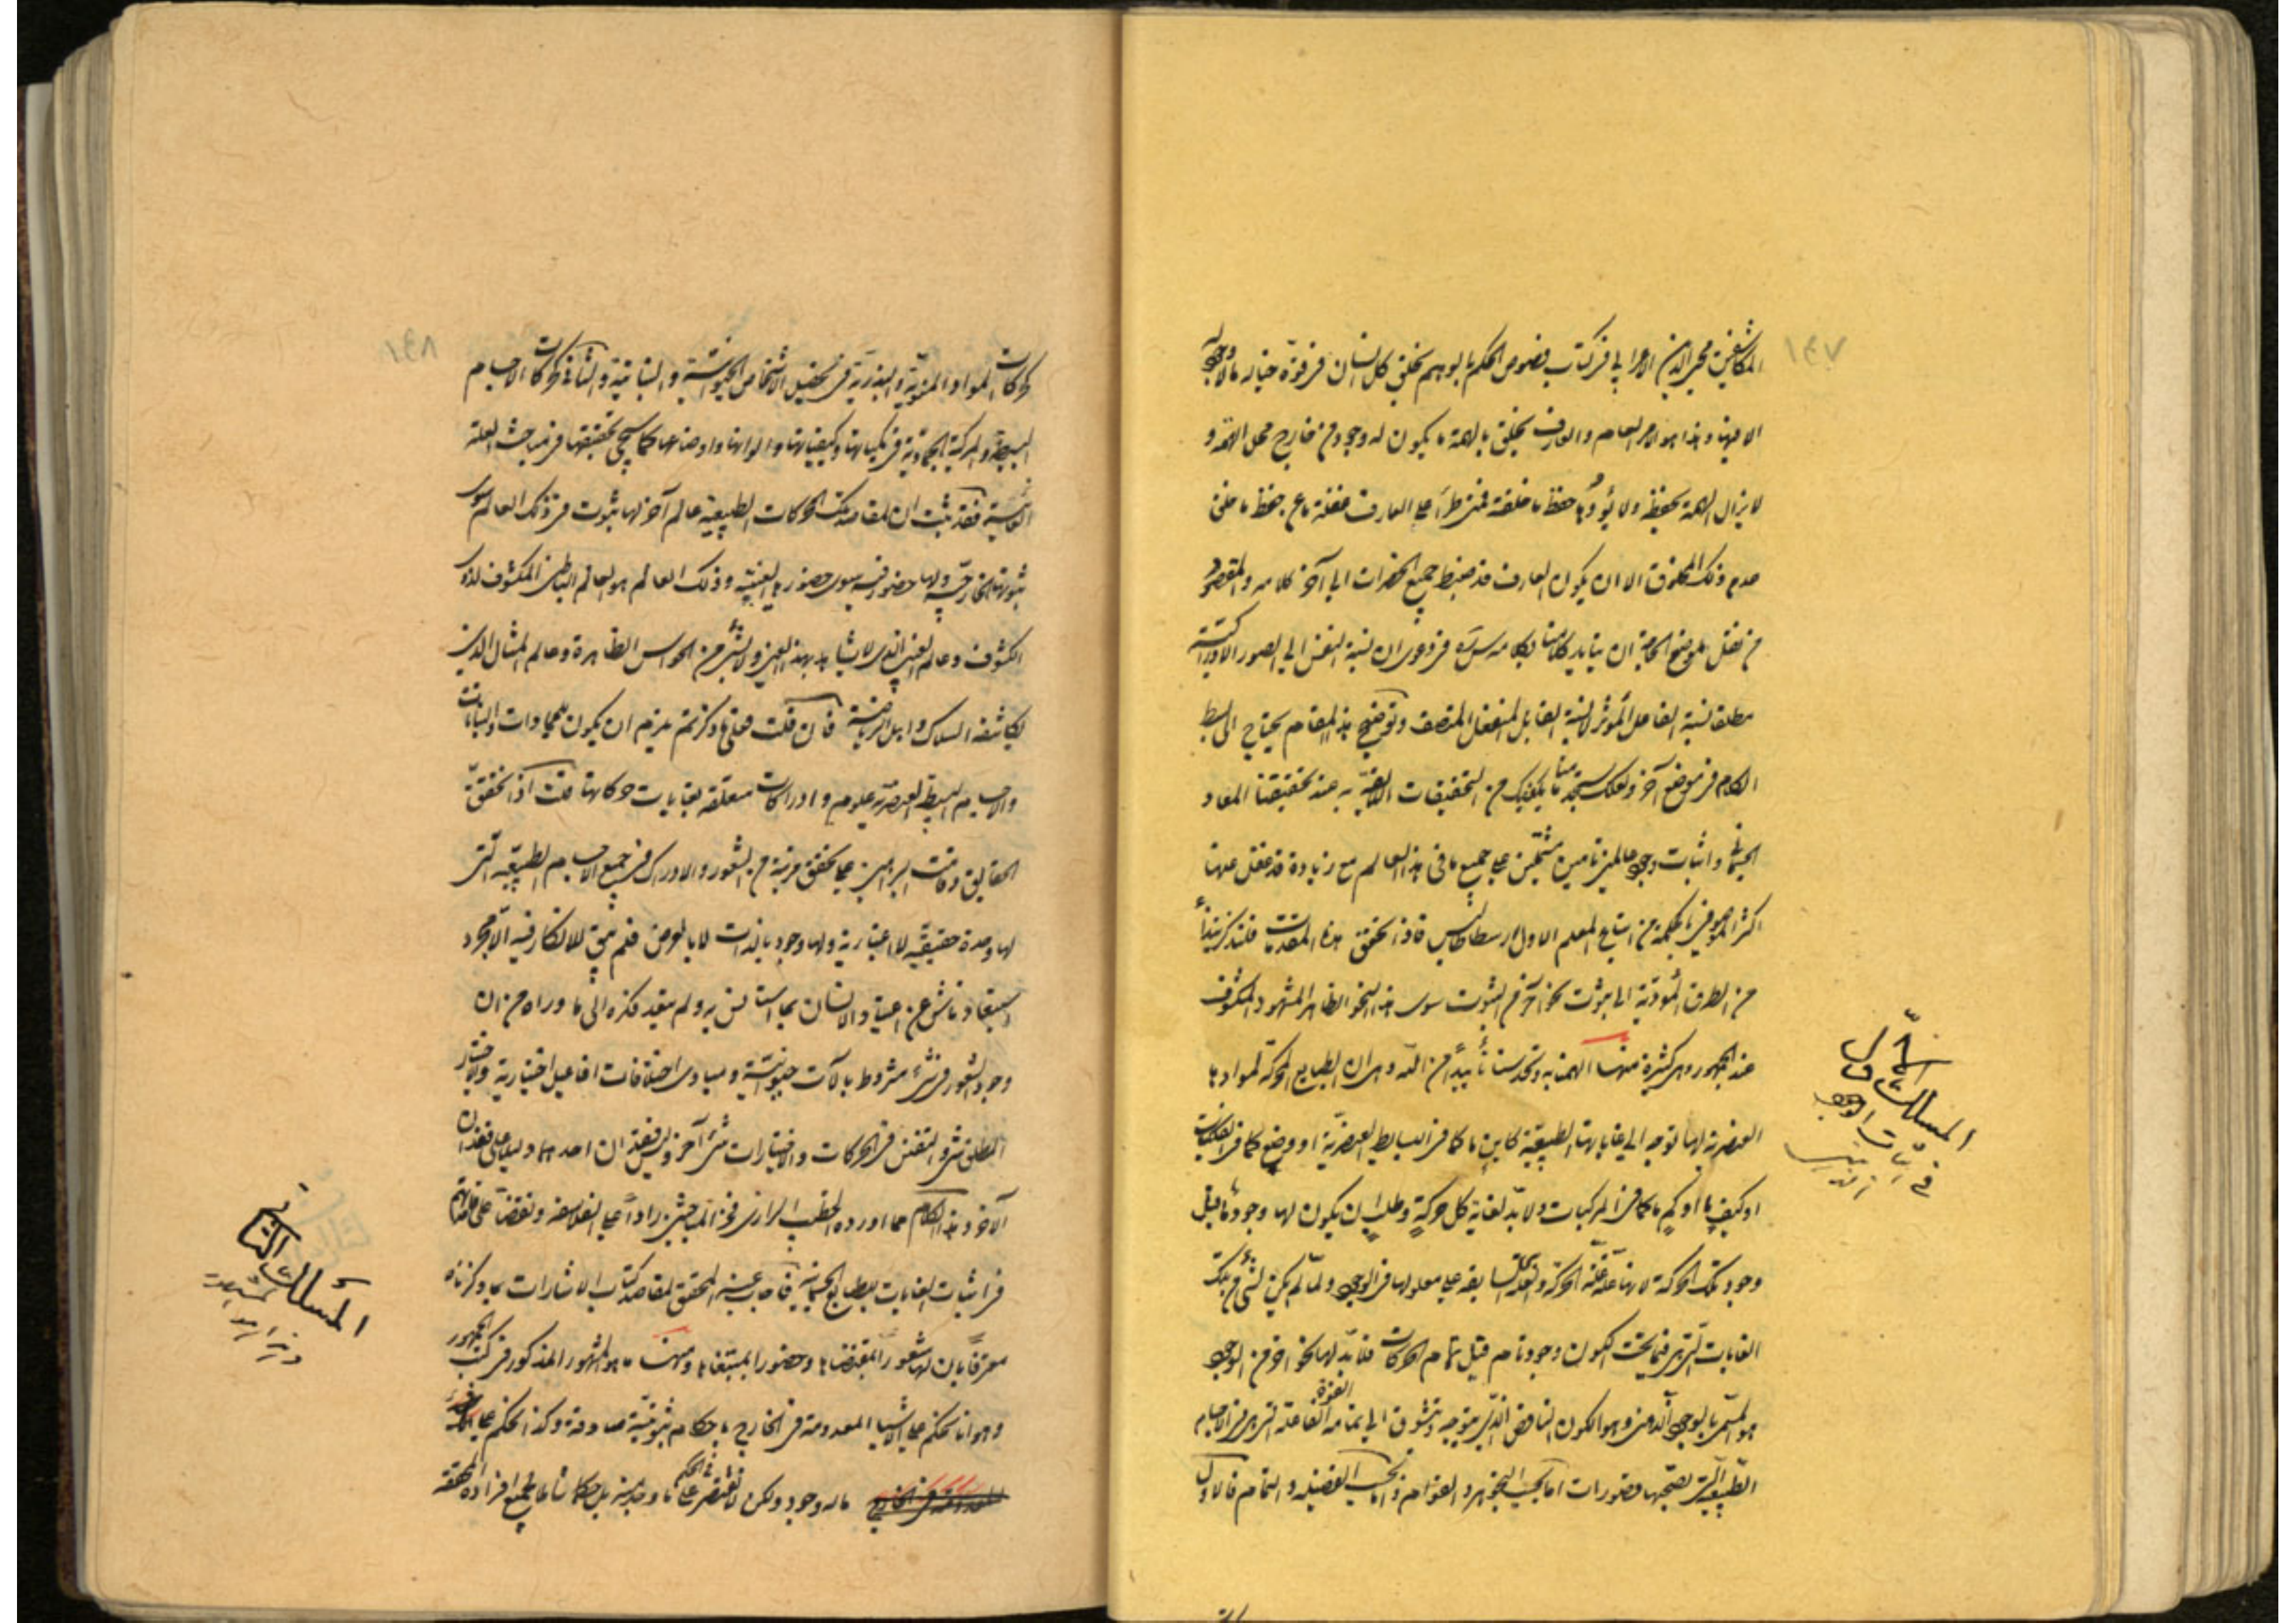 ١٤٧
المكاشفين محيي الدين الاعرابي في كتاب فصوص الحكم بالوهم يخلق كل انسان في قوة خياله ما لا وجود له
الا فيها وهذا هو الامر العام والعارف يخلق بالهمة ما يكون له وجود من خارج محل الهمة و
لا يزال الهمة تحفظه ولا يؤدها حفظ ما خلقته فمتى طرأ على العارف غفلة ما عن حفظ ما خلق
عدم ذلك المخلوق الا ان يكون العارف قد ضبط جميع الحضرات الى آخر كلامه والمقصود
من نقل موضع الحاجة ان يتأيد كلامنا بكلامه سره في دعوى ان نسبة النفس الى الصور الادراكية
مطلقا نسبة الفاعل المؤثر لا نسبة القابل المنفعل المتصف وتوضيح هذا المقام يحتاج الى بسط
الكلام في موضع آخر ولعلك ستجد منا ما يكفيك من التحقيقات اللايقة به عند تحقيقنا المعاد
الجسماني واثبات وجود عالمين تامين مشتملين على جميع ما في هذا العالم مع زيادة قد غفل عنها
اكثر الموصوفين بالحكمة من اتباع المعلم الاول ارسطاطاليس فاذا تحقق هذه المقدمات فلنذكر نبذا
من الطرق المؤدية الى ثبوت نحو آخر من الثبوت سوى هذا النحو الظاهر المشهود المكشوف
عند الجمهور وهي كثيرة منها الهمنا به وتحدسنا تأييدا من الله وهي ان الطبايع المحركة لموادها
العنصرية لها توجه الى غاياتها الطبيعية كاين ما كما في البسايط العنصرية او وضع كما في الفلكيات
او كيف ما او كم ما كما في المركبات ولا بد لغاية كل حركة وطلب ان يكون لها وجود ما قبل
وجود تلك الحركة لانها علة علة الحركة والعلة سابقة على معلولها في الوجود ولما لم يكن لشئ من تلك
الغايات التي هي فيما تحت الكون وجود تام قبل تمام الحركات فلا بد لها نحو آخر من الوجود
هو المسمى بالوجود الذهني وهو الكون الناقص الذي يتوجه ويتشوق الى تمامه القوة الفاعلة التي هي في الاجسام
الطبيعية التي تصحبها قصورات اما بحسب التجوهر والقوام واما بحسب الفضيلة والتمام فالاول
المسلك الاول
في اثبات الوجود
١٤٨
حركات المواد المنوية والبذرية في تحصيل الاشخاص الحيوانية والنباتية والثاني كحركات الاجسام
البسيطة والمركبة الجمادية في كمياتها وكيفياتها والوانها واوضاعها كما سيجئ تحقيقها في مباحث العلة
الغائية فقد ثبت ان لمقاصد تلك الحركات الطبيعية عالم آخر لها ثبوت في ذلك العالم سوى
ثبوتها الخارجي ولها حضور فيه سوى حضورها العيني وذلك العالم هو العالم الباطن المكشوف لذوى
الكشوف وعالم الغيب الذي لا يشاهد بهذه العين ولا بشئ من الحواس الظاهرة وعالم المثال الذي
يكاشفه السلاك واهل الرياضة فان قلت فعلى ما ذكرتم يلزم ان يكون للجمادات والنباتات
والاجسام البسيطة العنصرية علوم وادراكات متعلقة بغايات حركاتها قلت اذا تحقق
الحقايق وقامت البراهين على تحقق مرتبة من الشعور والادراك في جميع الاجسام الطبيعية التي
لها وحدة حقيقية لا اعتبارية ولها وجود بالذات لا بالعرض فلم يبق للانكار فيه الا مجرد
استبعاد ناش عن اعتياد الانسان بما استانس به ولم يتعد فكره الى ما وراه من ان
وجود الشعور في شئ مشروط بآلات حيوانية ومبادى اختلافات افاعيل اختيارية والاختيار
المطلق شئ والتفنن في الحركات والاختيارات شئ آخر وليس فقدان احدهما دليلا على فقدان
الآخر وهذا الكلام مما اورده الخطيب الرازي في المباحث رادا على الفلاسفة ونقضا على قاعدتهم
في اثبات الغايات للطبايع الجسمانية فاجاب عنه المحقق لمقاصد كتاب الاشارات بما ذكرناه
معترفا بان لها شعورا بمقتضاها وحضورا لمبتغاها ومنها ما هو المشهور المذكور في كتب الجمهور
وهو انا نحكم على الاشياء المعدومة في الخارج باحكام ثبوتية صادقة وكذا نحكم على
ما له وجود ولكن لا نقتصر في الحكم على ما وجد منه بل حكما شاملا لجميع افراده المحققة
المسلك الثاني